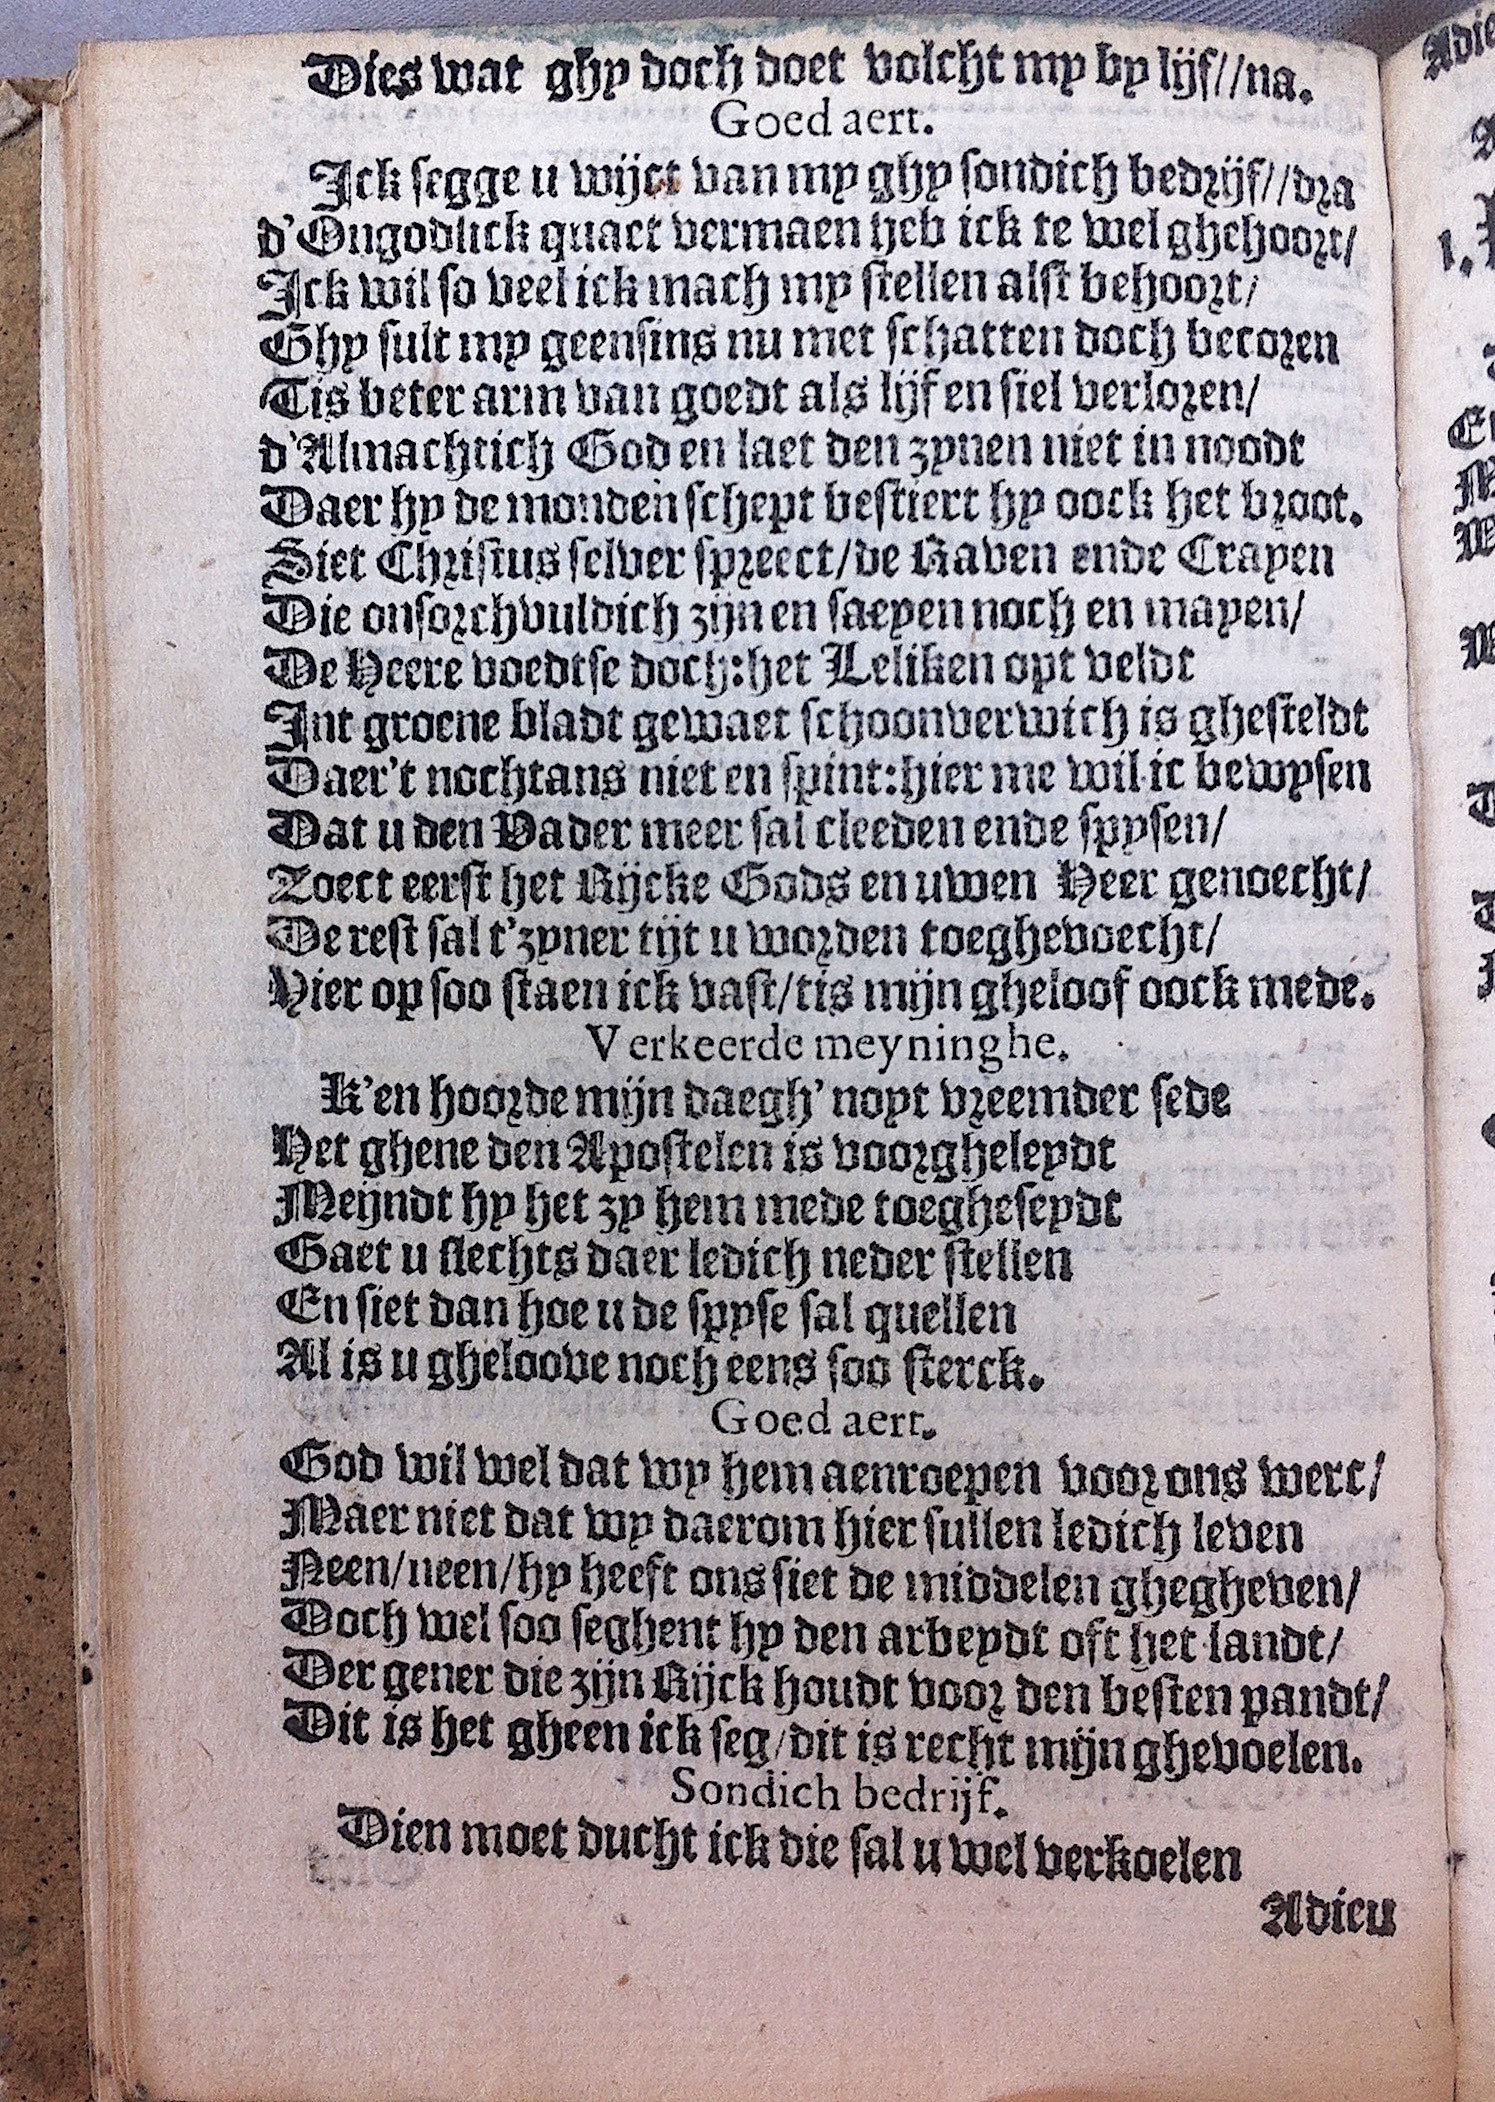 Dies wat ghy doch doet volcht my by lijf//na.
Goed aert.
Ick segge u wijct van my ghy sondich bedrijf//dra
d'Ongodlick quaet vermaen heb ick te wel ghehoort/
Ick wil so veel ick mach my stellen alst behoort/
Ghy sult my geensins nu met schatten doch betoren
Tis beter arm van goedt als lijf en siel verloren/
d'Almachtich God en laet den zynen niet in noodt
Daer hy de monden schept bestiert hy oock het broot.
Siet Christus selver spreect/de Raven ende Crayen
Die onsorchvuldich zijn en saeyen noch en mayen/
De Heere voedtse doch:het Leliken opt veldt
Int groene bladt gewaet schoonverwich is ghesteldt
Daer't nochtans niet en spint:hier me wil ic bewysen
Dat u den Vader meer sal cleeden ende spysen/
Zoect eerst het Rijcke Gods en uwen Heer genoecht/
De rest sal t'zyner tijt u worden toeghevoecht/
Hier op soo staen ick vast/tis mijn gheloof oock mede.
Verkeerde meyninghe.
K'en hoorde mijn daegh' noyt vreemder sede
Het ghene den Apostelen is voorgheleydt
Meijndt hy het zy hem mede toegheseydt
Gaet u slechts daer ledich neder stellen
En siet dan hoe u de spyse sal quellen
Al is u gheloove noch eens soo sterck.
Goed aert.
God wil wel dat wy hem aenroepen voor ons werc/
Maer niet dat wy daerom hier sullen ledich leven
Neen/neen/hy heeft ons siet de middelen ghegheven/
Doch wel soo seghent hy den arbeydt oft het landt/
Der gener die zijn Rijck houdt voor den besten pandt/
Dit is het gheen ick seg/dit is recht mijn ghevoelen.
Sondich bedrijf.
Dien moet ducht ick die sal u wel verkoelen
Adieu